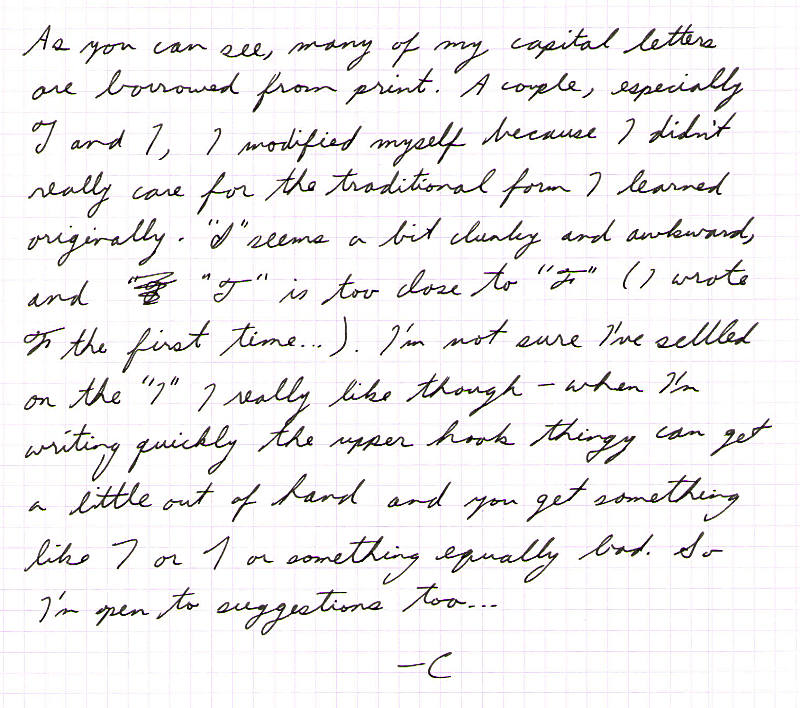 As you can see, many of my capital letters
are borrowed from print. A couple, especially
T and I, I modified myself because I didn't
really care for the traditional form I learned
originally. "I" seems a bit clunky and awkward,
and "T" is too close to "F" (I wrote
F the first time...). I'm not sure I've settled
on the "I" I really like though – when I'm
writing quickly the upper hook thingy can get
a little out of hand and you get something
like 7 or 1 or something equally bad. So
I'm open to suggestions too...
– C